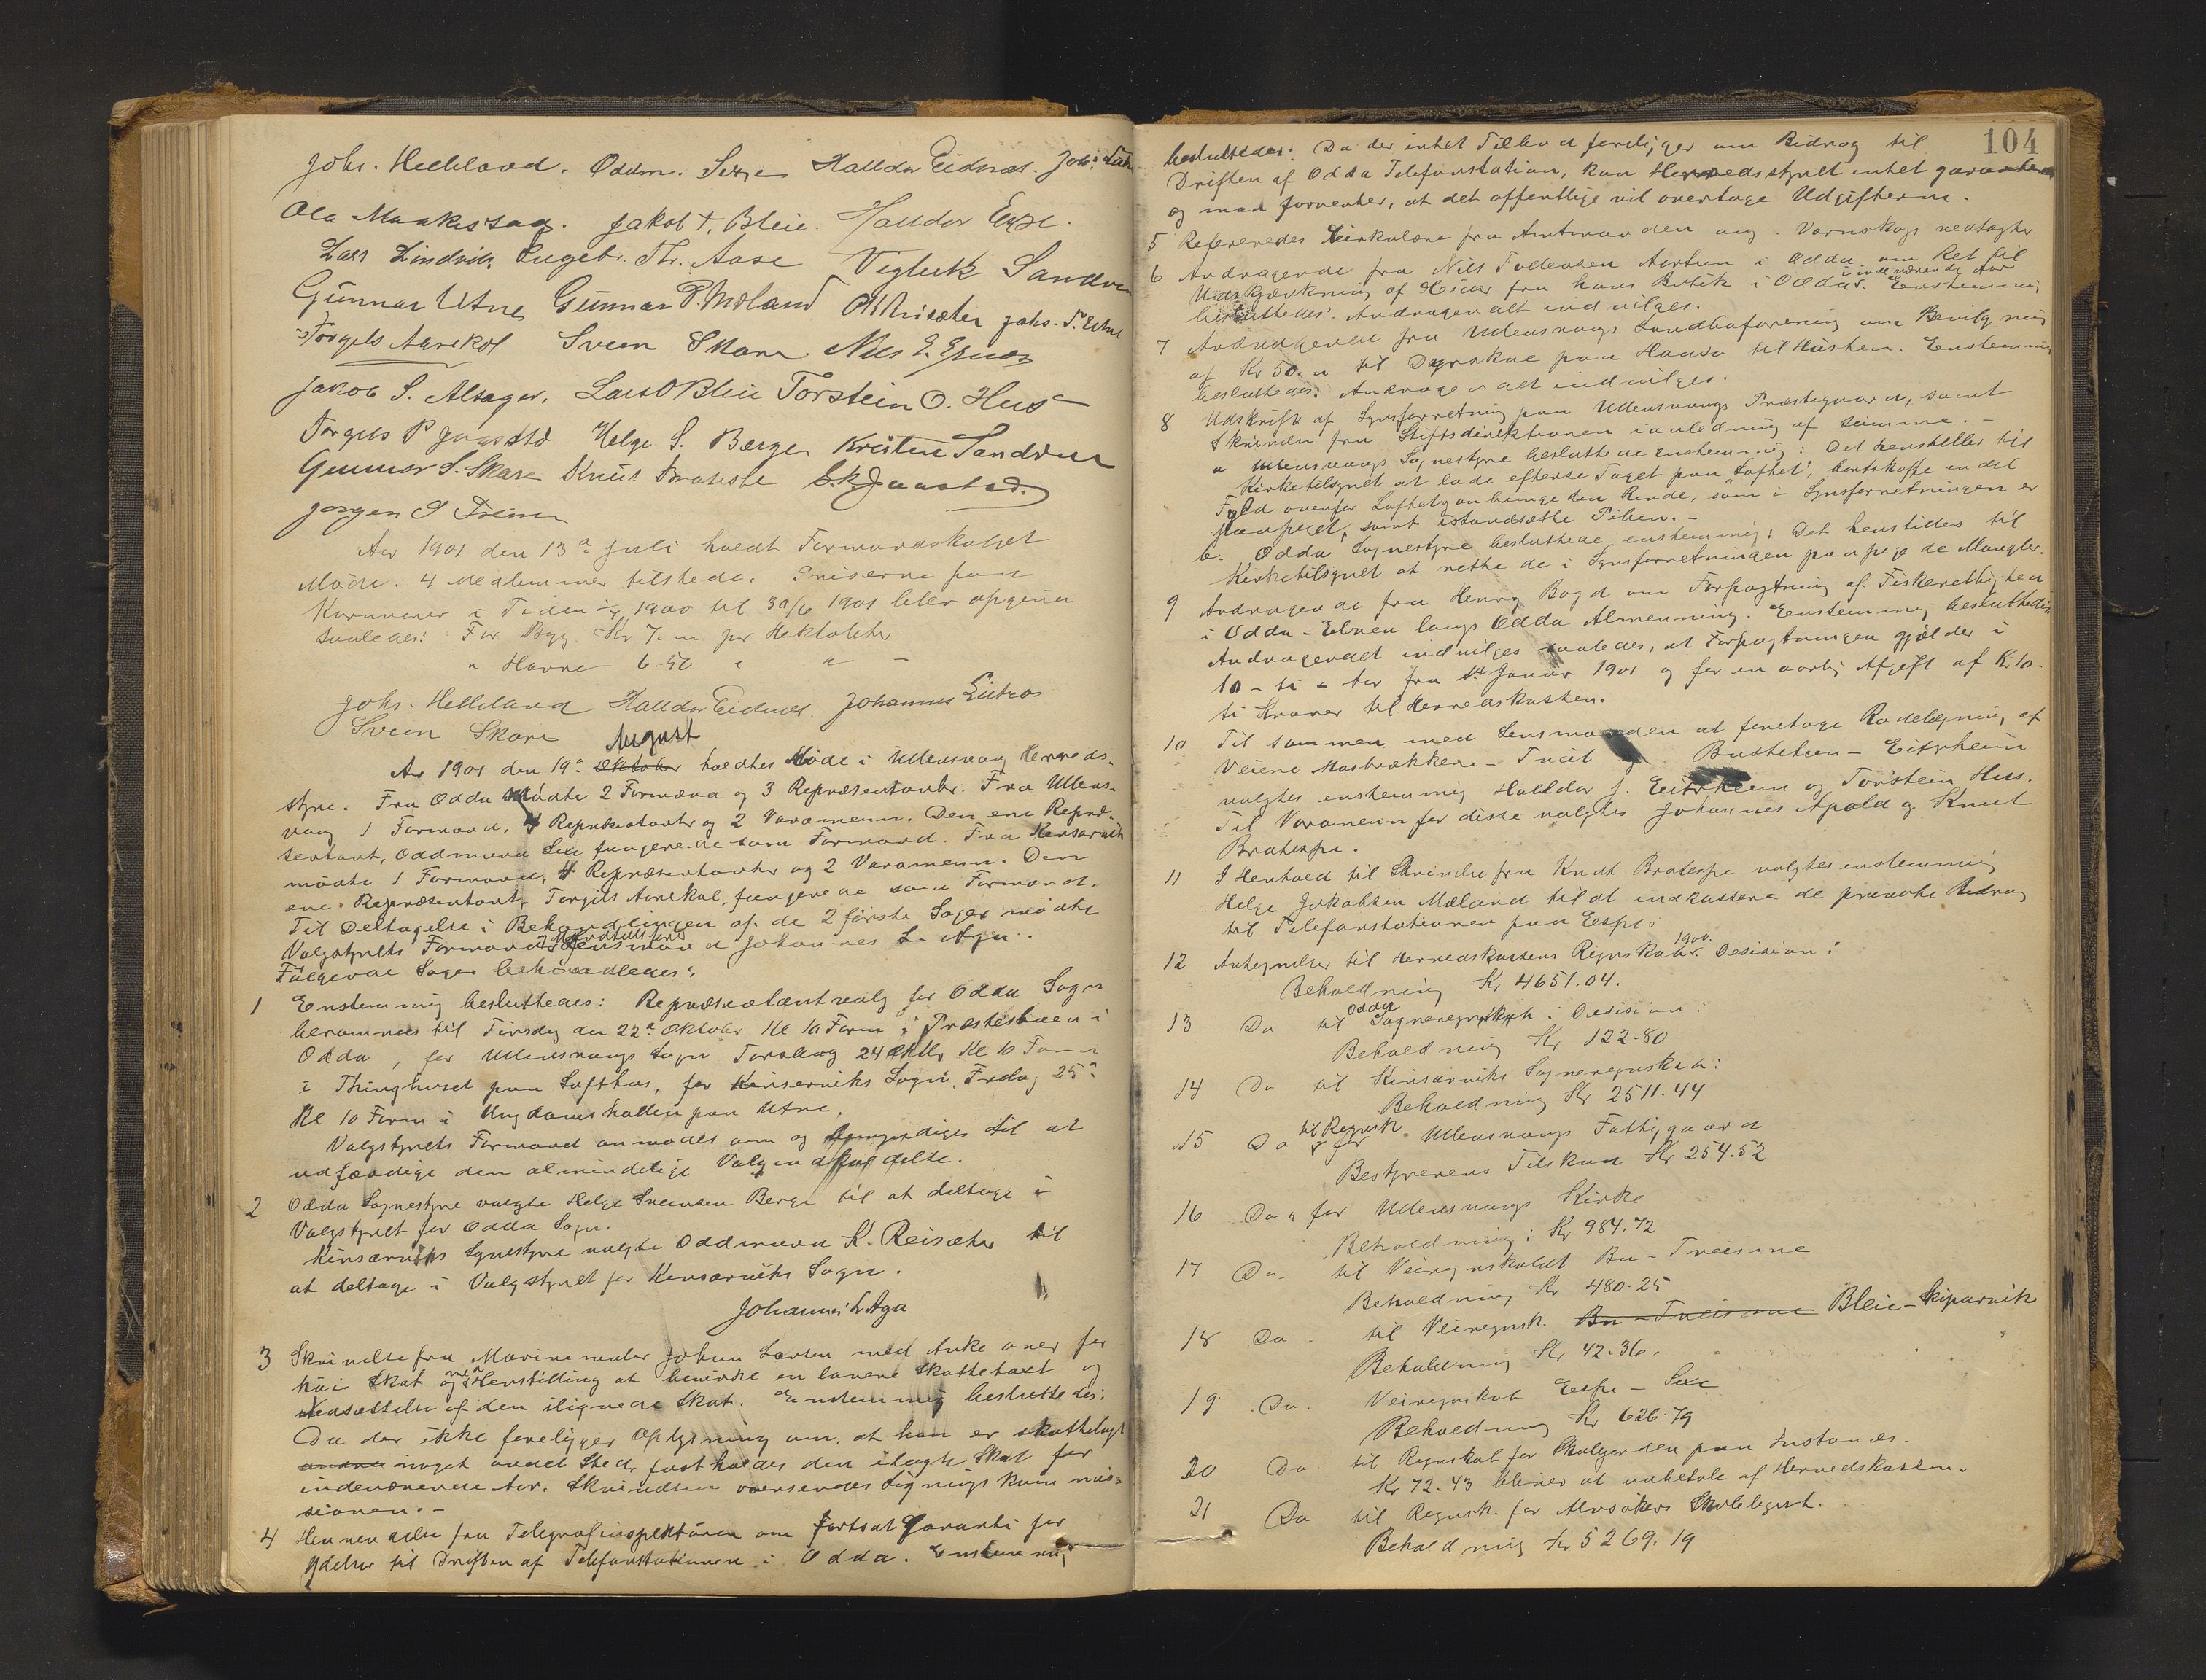 Johs. Helleland. Oddm. Sexe Halldor Eidnes. Johs.
Ola Maakestad. Jakob T. Bleie. Halldor Espe.
Lars Lindvik Engebr. Th. Aase Vigleik Sandven
Gunnar Utne Gunnar P. Mæland Johs. T. Utne
Torgels Aarekol Sveen Skare Nils E. Espen
Jakob S. Alsager. Lars O Bleie Torstein O. Hus
Torgils P Jaastad Helge S. Berge Kristen Sandven
Gunnar S. Skare Knut Bratespe S. K. Jaastad.
Jørgen S Freim
Aar 1901 den 13de Juli holdt Formandskabet
Møde. 4 Medlemmer tilstede. Priserne paa
Kornvarer i Tiden 1/7 1900 til 30/6 1901 blev opgiven
saaledes: For Byg Kr 7. pr Hektoliter
" Havre 6.50 " " -
Johs. Helleland Halldor Eidnes. Johannes Eitnes
Sveen Skare
August
Aar 1901 den 19de Oktober holdtes Møde i Ullensvang Herreds-
styre. Fra Odda mødte 2 Formænd og 3 Repræsentanter. Fra Ullens-
vang 1 Formand, 4 Repræsentanter og 2 Varamenn. Den ene Repræ-
sentant, Oddmund Sexe fungerede som Formand. Fra Kinsarvik
mødte 1 Formand, 4 Repræsentanter og 2 Varamenn. Den
ene Repræsentant, Torgils Aarekol, fungerede som Formand.
Til Deltagelse i Behandlingen af de 2 første Sager mødte
Valgstyrets Formand, Lensmand Johannes L. Aga.
Følgende Sager behandledes:
1 Enstemmig besluttedes: Repræsentantvalg for Odda Sogn
berammes til Tirsdag den 22de Oktober Kl 10 Form i Præstestuen i
Odda, for Ullensvangs Sogn Torsdag 24 Oktbr Kl 10 Form
i Thinghuset paa Lofthus, for Kinserviks Sogn, Fredag 25de
Kl 10 Form i Ungdomshallen paa Utne.
Valgstyrets Formand anmodes om og bemyndiges til at
udfærdige den almindelige Valgindkaldelse.
2 Odda Sognestyre valgte Helge Sveinsen Berge til at deltage i
Valgstyret for Odda Sogn.
Kinsarviks Sognestyre valgte Oddmund K. Reisæter til
at deltage i Valgstyret for Kinsarviks Sogn.
Johannes L Aga
3 Skrivelse fra Marinemaler Johan Larsen med Anke over for
høi Skat og med Henstilling at bevirke en lavere Skattetaxt og
nedsættelse af den ilignede Skat. Enstemmig besluttedes:
Da der ikke foreligger Oplysning om, at han er skattelagt
andre noget andet Sted, fastholdes den ilagte Skat for
indeværende Aar. Skrivelsen oversendes Ligningskommis-
sionen.-
4 Henvendelse fra Telegrafinspektøren om fortsat Garanti for
Ydelser til Driften af Telefonstationen i Odda. Enstemmig
104
besluttedes: Da der intet Tilbud foreligger om Bidrag til
Driften af Odda Telefonstation, kan Herredsstyret intet garantere
og man forventer, at det offentlige vil overtage Udgifterne.
5 Refereredes Cirkulære fra Amtmanden ang. Vernskogs nedtagter
6 Andragende fra Nils Tollevsen Aartun i Odda om Ret til
Udskjænkning af Cider fra hans Butik i Odda i indeværende Aar. Enstemmig
besluttedes: Andragendet indvilges.
7 Andragende fra Ullensvangs Landboforening om Bevilgning
af Kr 50. til Dyrskue paa Hauso til Høsten. Enstemmig
besluttedes: Andragendet indvilges.
8 Udskrift af Synsforretning paa Ullensvangs Præstegaard, samt
Skrivelse fra Stiftsdirektionen i anledning af samme. -
a Ullensvangs Sognestyre besluttede enstemmig: Det henstilles til
Kirketilsynet at lade efterse Taget paa Loftet, bortskaffe en del
Fyld ovenfor Loftet, som i Synsforretningen er
paapeget, samt istandsætte Piben. -
b. Odda Sognestyre besluttede enstemmig: Det henstilles til
Kirketilsynet at rette de i Synsforretningen paapegede Mangler.
9 Andragende fra Henry Boyd om Forpagtning af Fiskerettigheden
i Odda-Elven langs Odda Almenning. Eenstemmig besluttedes:
Andragendet indvilges saaledes, at Forpagtningen gjælder i
10 - ti - Aar fra 1st Januar 1901 og for en aarlig Afgift af Kr 10-
ti Kroner til Herredskassen.
10 Til sammen med Lensmanden at foretage Rodelægning af
Veiene Mosbækkene - Bustetun - Eitrheim
valgtes enstemmig Halldor J. Eitrheim og Torstein Hus.
Til Varamenn for disse valgtes Johannes Apold og Knut
Bratespe.
11 I Henhold til Skrivelse fra Knut Bratespe valgtes enstemmig
Helge Jakobsen Mæland til at indkassere de private Bidrag
til Telefonstationen paa Espe.
12 Antegnelser til Herredskassens Regnskab 1900. Desision:
Beholdning Kr 4651.04.
13 Do til Odda Sogneregnskab: Desision:
Beholdning Kr 122-80
14 Do til Kinsarviks Sogneregnskab:
Beholdning Kr 2511.44
15 Do til Regnsk for Ullensvangs Fattiggaard
Bestyrerens Tilskud Kr 254.52
16 Do " for Ullensvangs Kirke
Beholdning: Kr 984.72
17 Do- til Veiregnskabet Bu - Treisme
Beholdning Kr 480-25
18 Do - til Veiregnsk. Bu - Treisme Bleie-Skiparvik
Beholdning Kr 42.36.
19 Do. Veiregnskab Espe - Sexe
Beholdning Kr 626.79
20 Do til Regnskab for Skolgarden paa Instanes.
Kr 72.43 bliver at udbetale af Herredskassen.
21 Do til Regnsk. for Alvsakers Skolelegat.
Beholdning Kr 5269.19